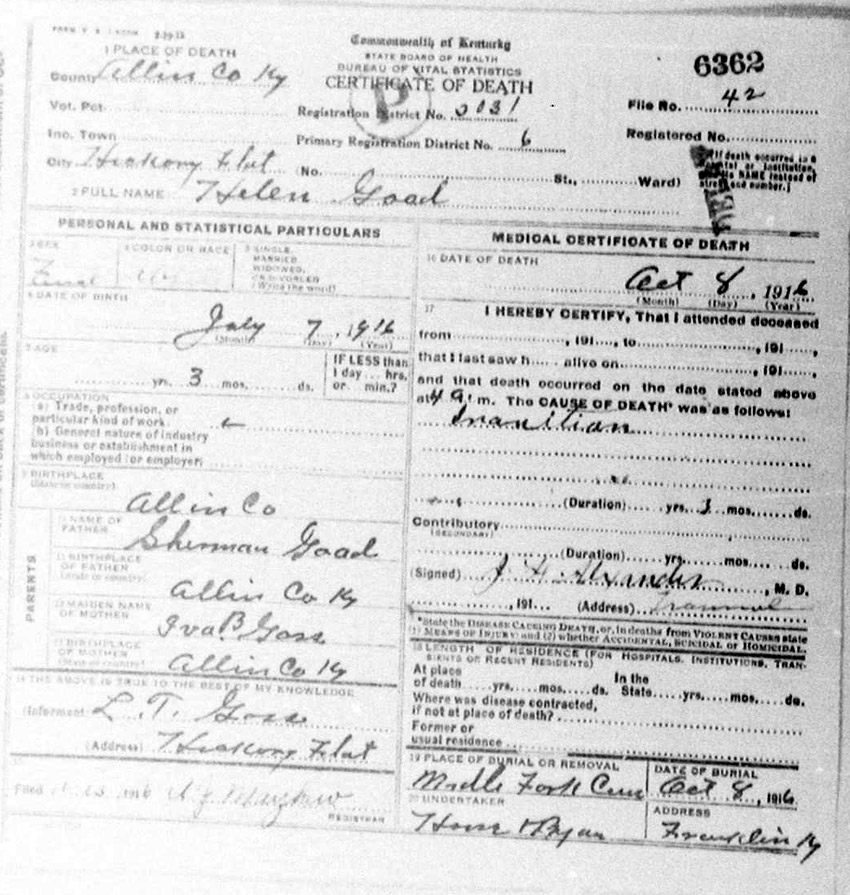 1 PLACE OF DEATH
County Allin Co Ky
Vot. Pct.
Inc. Town
City Hickory Flat (No. St., Ward)
2 FULL NAME Helen Goad
Commonwealth of Kentucky
STATE BOARD OF HEALTH
BUREAU OF VITAL STATISTICS
CERTIFICATE OF DEATH
Registration District No. 5031
Primary Registration District No. 6
6362
File No. 42
Registered No.
[If death occurred in a
Hospital or Institution,
give its NAME instead of
street and number.]
PERSONAL AND STATISTICAL PARTICULARS
3 SEX
4 COLOR OR RACE
5 SINGLE,
MARRIED
WIDOWED,
OR DIVORCED
(Write the word)
6 DATE OF BIRTH
July 7, 1916
(Month) (Day) (Year)
7 AGE
yrs. 3 mos. ds.
IF LESS than
1 day hrs.
or min.?
8 OCCUPATION
a) Trade, profession, or
particular kind of work
b) General nature of industry
business or establishment in
which employed (or employer)
9 BIRTHPLACE
(State or country)
Allin Co
PARENTS
10 NAME OF
FATHER
Sherman Goad
11 BIRTHPLACE
OF FATHER
(State or country)
Allin Co Ky
12 MAIDEN NAME
OF MOTHER
Iva B Goss
13 BIRTHPLACE
OF MOTHER
(State or country)
Allin Co Ky
14 THE ABOVE IS TRUE TO THE BEST OF MY KNOWLEDGE
(Informant) L. T. Goss
(Address) Hickory Flat
15
Filed 1916
REGISTRAR
MEDICAL CERTIFICATE OF DEATH
16 DATE OF DEATH
Oct 8, 1916
(Month) (Day) (Year)
17 I HEREBY CERTIFY, That I attended deceased
from , 191 , to , 191 ,
that I last saw h alive on , 191 ,
and that death occurred on the date stated above
at 4 a. m. The CAUSE OF DEATH* was as follows:
Inanitian
(Duration) yrs. 3 mos. ds.
Contributory
(SECONDARY)
(Duration) yrs. mos. ds.
(Signed) J. H. Alexander, M. D.
, 191 (Address)
*State the DISEASE CAUSING DEATH, or, in deaths from VIOLENT CAUSES state
(1) MEANS OF INJURY; and (2) whether ACCIDENTAL, SUICIDAL or HOMICIDAL.
18 LENGTH OF RESIDENCE (FOR HOSPITALS, INSTITUTIONS, TRAN-
SIENTS OR RECENT RESIDENTS)
At place In the
of death yrs. mos. ds. State yrs. mos. ds.
Where was disease contracted,
if not at place of death?
Former or
usual residence
19 PLACE OF BURIAL OR REMOVAL
Midle Fork Cem
DATE OF BURIAL
Oct 8, 1916
20 UNDERTAKER
ADDRESS
Franklin Ky